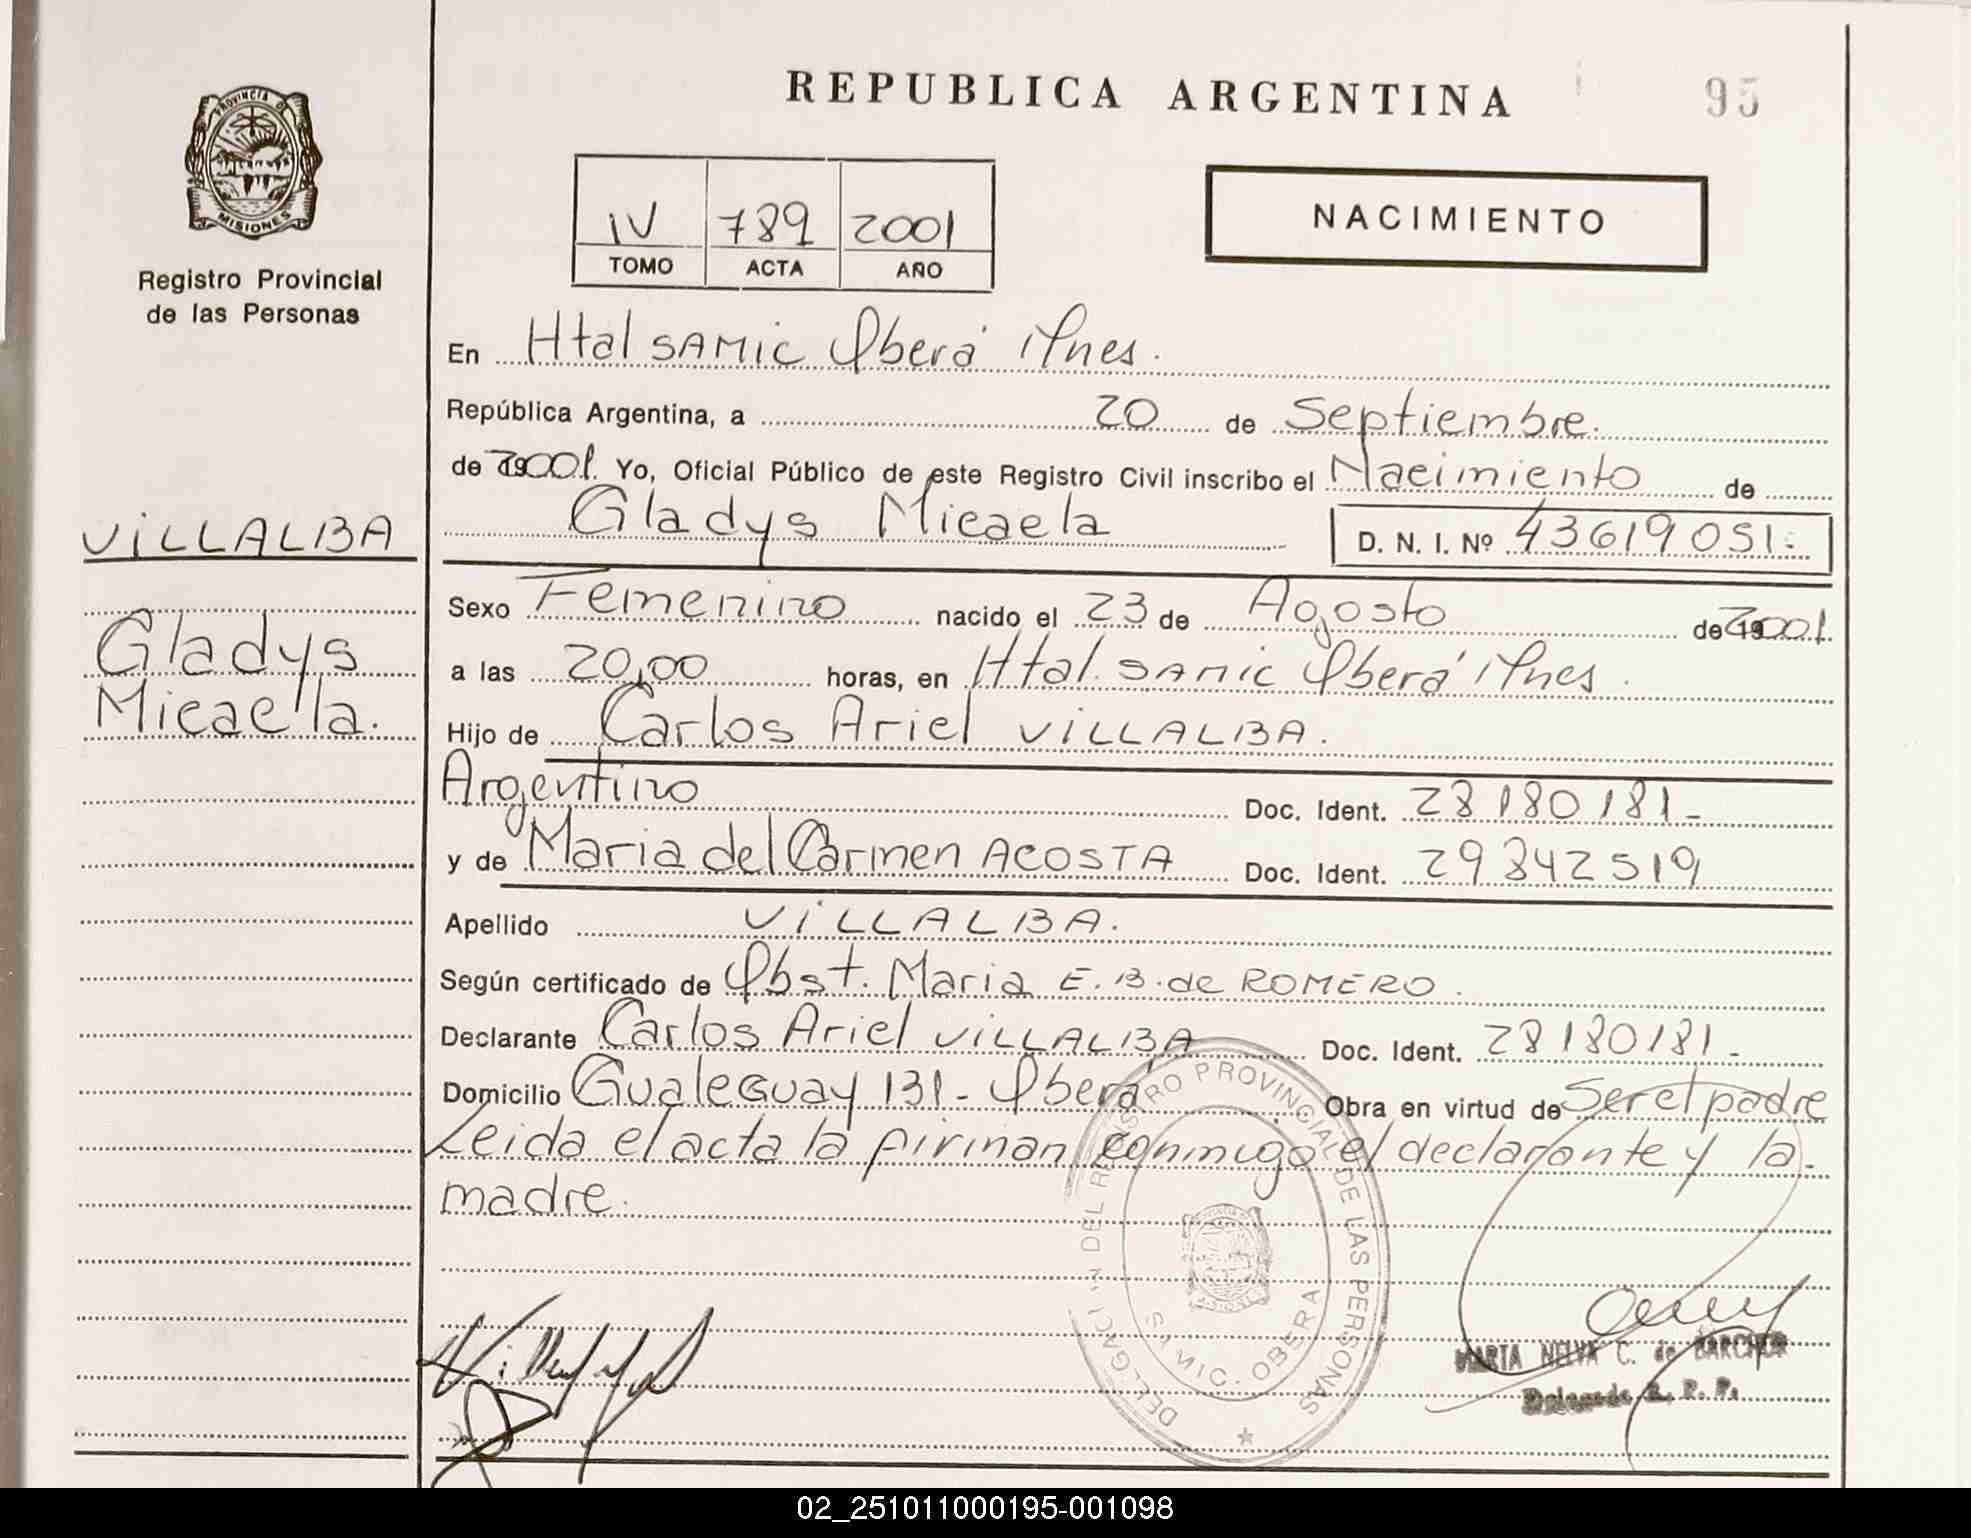 REPUBLICA ARGENTINA
95
PROVINCIA DE
MISIONES
Registro Provincial
de las Personas
IV 789 2001
TOMO ACTA AÑO
NACIMIENTO
En Htal SAMIC Oberá Mnes.
República Argentina, a 20 de Septiembre.
de 2001. Yo, Oficial Público de este Registro Civil inscribo el Nacimiento de
Gladys Micaela D. N. I. Nº 43619051.-
VILLALBA
Gladys
Micaela.
Sexo Femenino nacido el 23 de Agosto de 2001.
a las 20,00 horas, en Htal. SAMIC Oberá Mnes.
Hijo de Carlos Ariel VILLALBA.
Argentino Doc. Ident. 28180181-
y de Maria del Carmen ACOSTA Doc. Ident. 29842519
Apellido VILLALBA.
Según certificado de Obst. Maria E. B. de ROMERO.
Declarante Carlos Ariel VILLALBA Doc. Ident. 28180181-
Domicilio Gualeguay 131- Oberá Obra en virtud de Ser el padre
Leida el acta la firman conmigo el declarante y la
madre.
DEL REGISTRO PROVINCIAL DE LAS PERSONAS
OBERA
MARTA NELVA C. de BARCHUK
Delegada R. P. P.
02_251011000195-001098